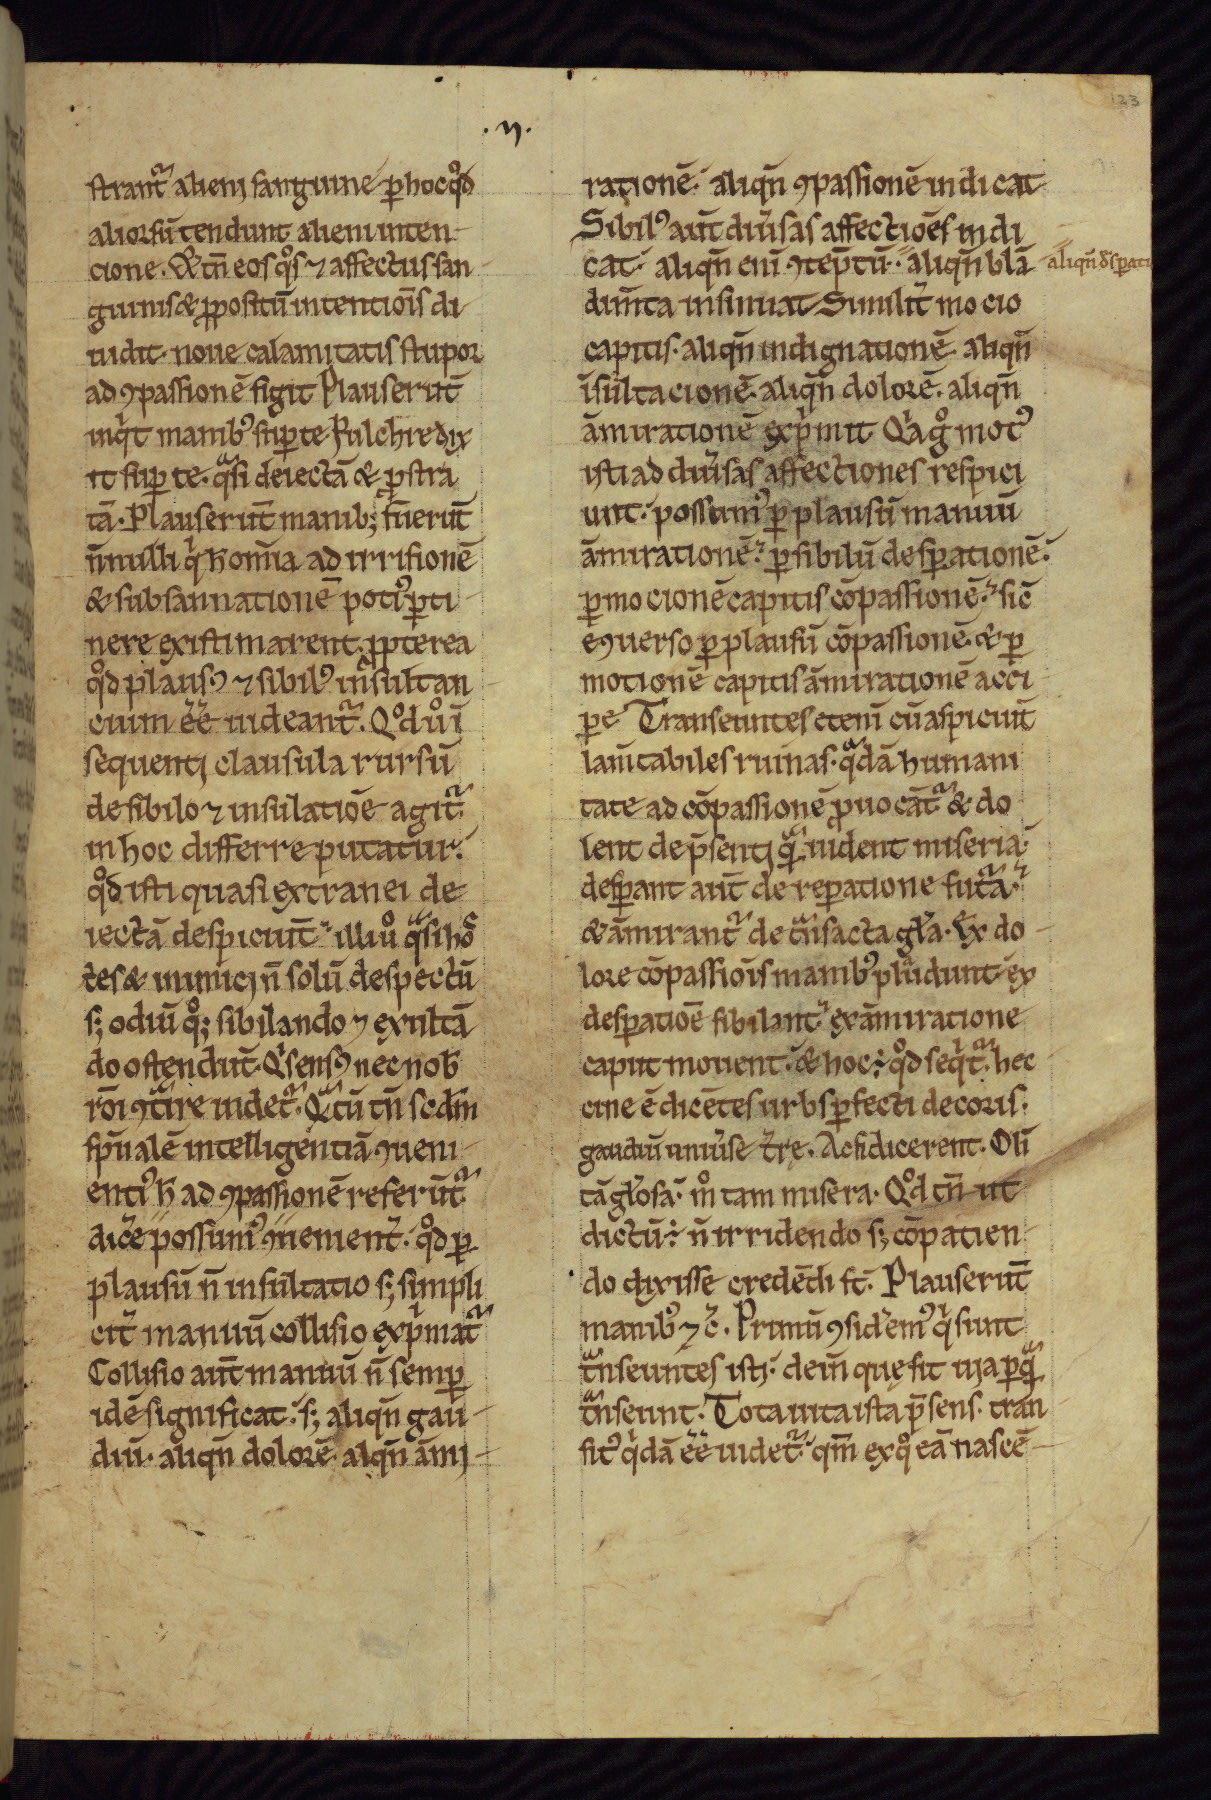 ·n·
133
strant᷑ alienj sanguine ꝑ hoc qͦd
aliorsū tendunt alieni inten
cione. Qͥ tn̄ eos qͦs ⁊ affectus san
guinis & ꝓpositū intentiōis di
uidit. noue calamitatis stupor
ad ꝯpassionē figit Plauserūt
inqͥt manibꝰ suꝑ te Pulchre dix
it suꝑ te. qᷓsi deiectā & ꝓstra
tā. Plauserūt manibꝫ fuerūt
n̄nulli qͥ h̄ omīa ad irrisionē
& subsannationē potiꝰ ꝑti
nere existimarent. ꝓpterea
qͦd plausꝰ ⁊ sibilꝰ insultan
cium eē uideant᷑. Qͦd ūͦ ī
sequentj clausula rursū
de sibilo ⁊ insulatiōe agit᷑
in hoc differre putatur.
qͦd isti quasi extranei de
iectā despiciūt. illi ūͦ qᷓsi hos
tes & inimicj n̄ solū despectū
sꝫ odiū qͦꝫ sibilando ⁊ exultā
do ostendūt. Qͥ sensꝰ nec nob̄
rōi ꝯtͣire uidet᷑. Qᷓtū tn̄ scdm̄
spūalē intelligentiā ꝯueni
entiꝰ h̄ ad ꝯpassionē referūt᷑
dicͤe possumꝰ ꝯuenient᷑. qͦd ꝑ
plausū n̄ insultatio sꝫ simpli
cit᷑ manuū collisio expͥmat᷑
Collisio aūt manuū n̄ semꝑ
idē significat. sꝫ aliqn̄ gau
diū. aliqn̄ dolorē. alqn̄ āmi
rationē. aliqn̄ ꝯpassionē indicat
Sibilꝰ aūt diūsas affectiōes indi
cat. aliqn̄ eni᷑ ꝯtēptū. aliqn̄ blā
aliqn̄ dsꝑati
dim̄ta insinuat Similit᷑ mocio
capitis. aliqn̄ indignationē aliqn̄
īsultacionē. aliqn̄ dolorē. aliqn̄
āmirationē expͥmit Qͥa gͦ motꝰ
isti ad diūsas affectiones respici
unt. possumꝰ ꝑ plausū manuū
āmirationē. ꝑ sibilū desꝑationē.
ꝑ mocionē capitis cōpassionē. sic̄
eꝯuerso ꝑ plausū cōpassionē. & ꝑ
motionē capitis āmirationē acci
ꝑe Transeuntes eteni᷑ cū aspiciūt
lam̄tabiles ruinas. qᷓdā humani
tate ad cōpassionē ꝓuocāt᷑ & do
lent de p̄sentj qᷓ uident miseria.
desꝑant aūt de reꝑatione futͣa.
& āmirant᷑ de tͣnsacta gl̄a. Ex do
lore cōpassiōis manibꝰ plaudunt. ex
desꝑatiōe sibilant. ex āmiratione
caput mouent. & hoc ÷ qͦd seqͥt᷑. hec
cine ē dicētes urbs ꝑfecti decoris.
gaudiū uniūse tr̄ę. Ac si dicerent. Oli᷑
tā gl̄osa. mͦ tam misera. Qͦd tn̄ ut
dictū ÷ n̄ irridendo sꝫ cōpatien
do dixisse credēdi st̄. Plauserūt
manibꝰ ⁊ c̄. Primū ꝯsidemꝰ qͥ sunt
tͣnseuntes isti. dein̄ quę sit uia ꝑ qᷓ
tͣnseunt. Tota uita ista p̄sens. tran
sitꝰ qͥdā eē uidet᷑. qm̄ ex qͦ eā nascē